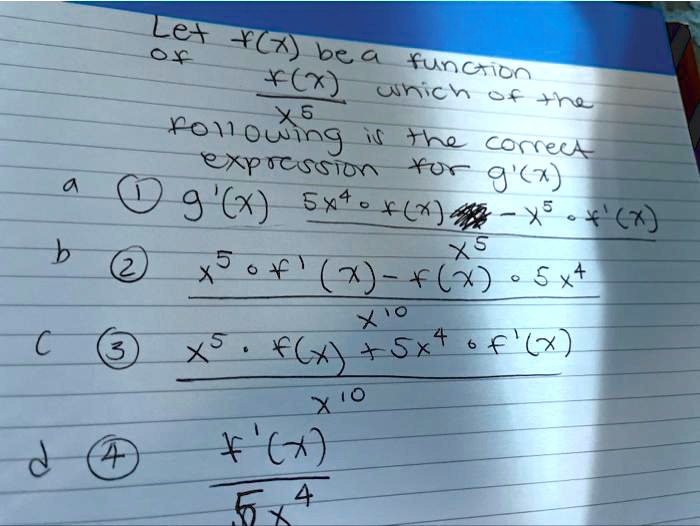 Let f(x) be a function
of f(x)/x⁵ which of the
following is the correct
expression for g'(x)
a ① g'(x) (5x⁴ · f(x) - x⁵ · f'(x))/x⁵
b ② (x⁵ · f'(x) - f(x) · 5x⁴)/x¹⁰
c ③ (x⁵ · f(x) + 5x⁴ · f'(x))/x¹⁰
d ④ f'(x)/5x⁴